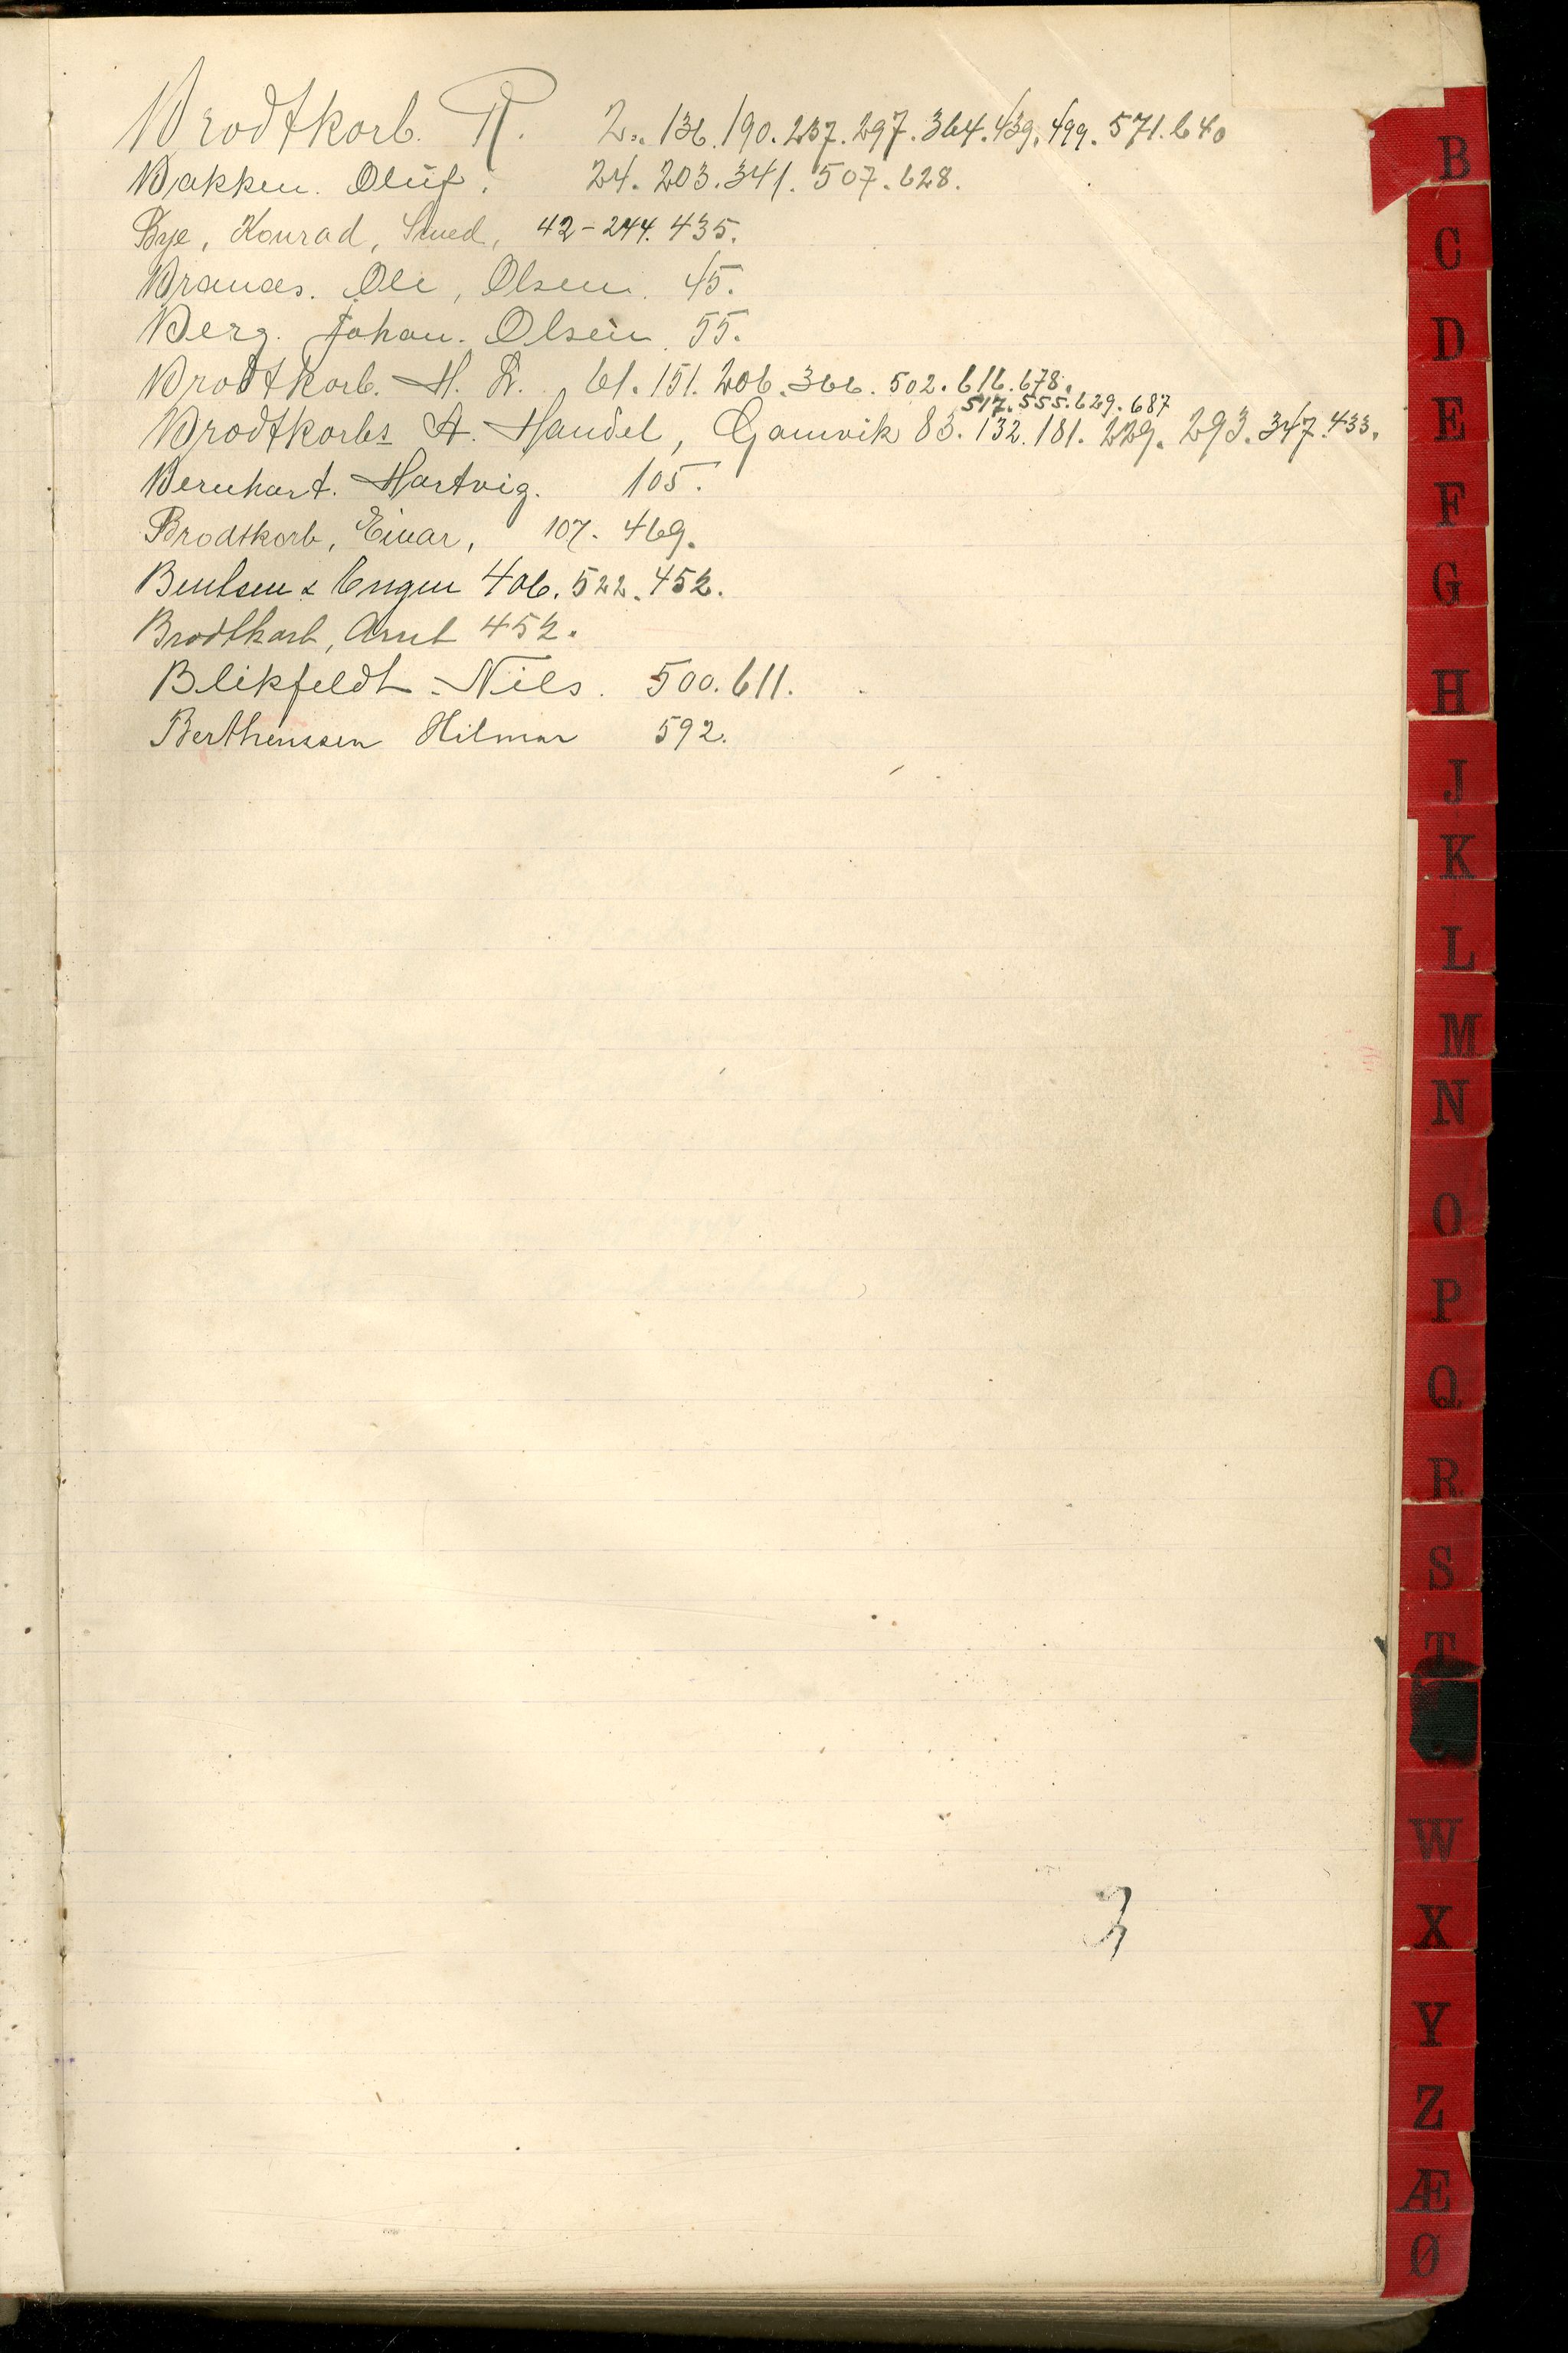 Brodtkorb. R. 2. 136. 190. 237. 297. 364. 439. 499. 571. 640
Bakken. Oluf. 24. 203. 341. 507. 628.
Bye, Konrad, Smed, 42-244. 435.
Ole, Olsen. 45.
Berg. Johan. Olsen. 55.
Brodtkorb. H. 61. 151. 206. 366. 502. 616. 678.
517. 555. 629. 687
Brodtkorbs A. Handel, Gamvik 83. 132. 181. 229. 293. 347. 433.
Bernhart. Hartvig. 105.
Brodtkorb, Einar, 107. 469.
Bentsen & Engen 406. 522. 452.
Brodtkorb, Arnt 452.
Blikfeldt. Nils. 500. 611.
Berthenssen Hilmar 592.
3
B
C
D
E
F
G
H
J
K
L
M
N
O
P
Q
R
S
T
W
X
Y
Z
Æ
Ø